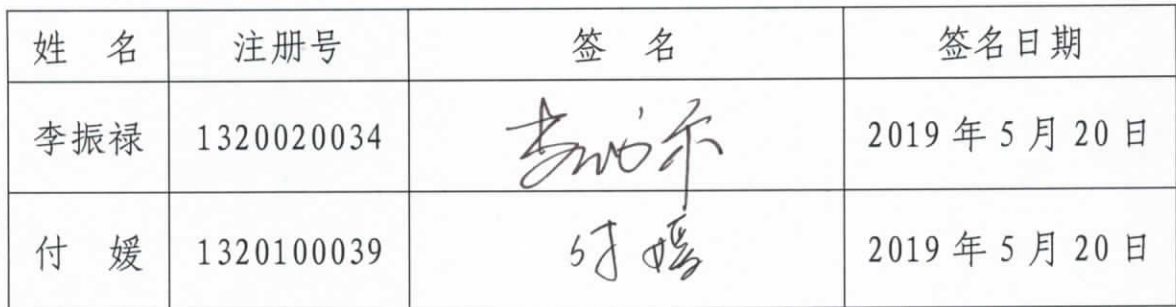 姓 名 注册号 签 名 签名日期
李振禄 1320020034 2019 年 5 月 20 日
付 媛 1320100039 付媛 2019 年 5 月 20 日